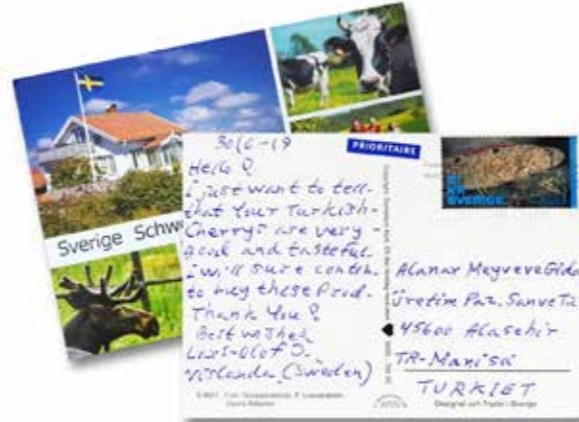 Sverige Schw
30/6-19
PRIORITAIRE
Hello!
i just want to tell-
that Your Turkish-
Cherrys are very
good and tasteful.
i will sure contin.
to buy these Prod.
Thank You!
Best wishes
(Sweden)
SVERIGE
Alanar Meyve ve Gıda
Üretim Paz. San ve Tic
45600 Alasehir
TR-Manisa
TURKIET